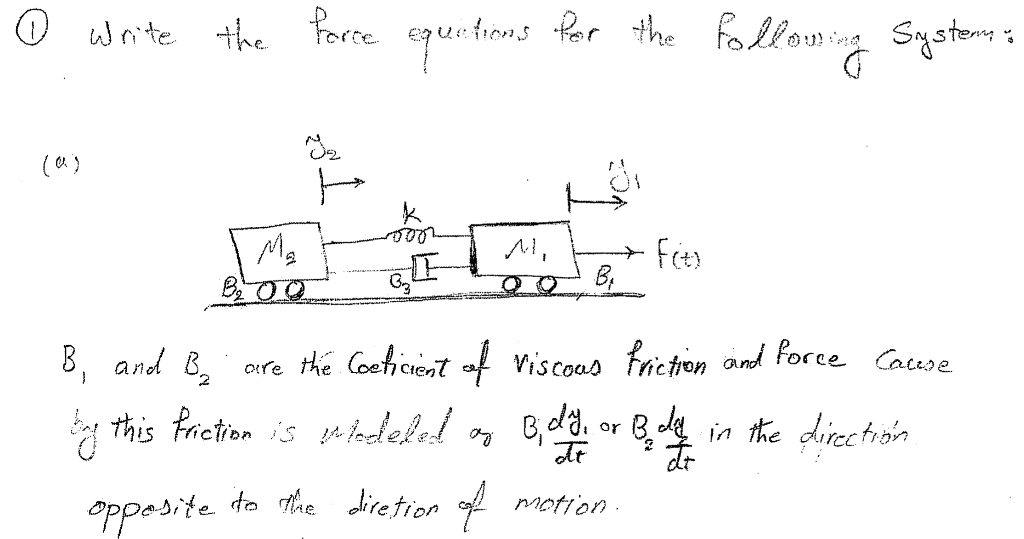 ① Write the force equations for the following System:
(a)
y₂
y₁
k
M₂
M₁
F(t)
B₂
B₃
B₁
B₁ and B₂ are the Coeficient of Viscous friction and force Cause
by this friction is modeled as B₁ dy₁/dt or B₂ dy₂/dt in the direction
opposite to the diretion of motion.